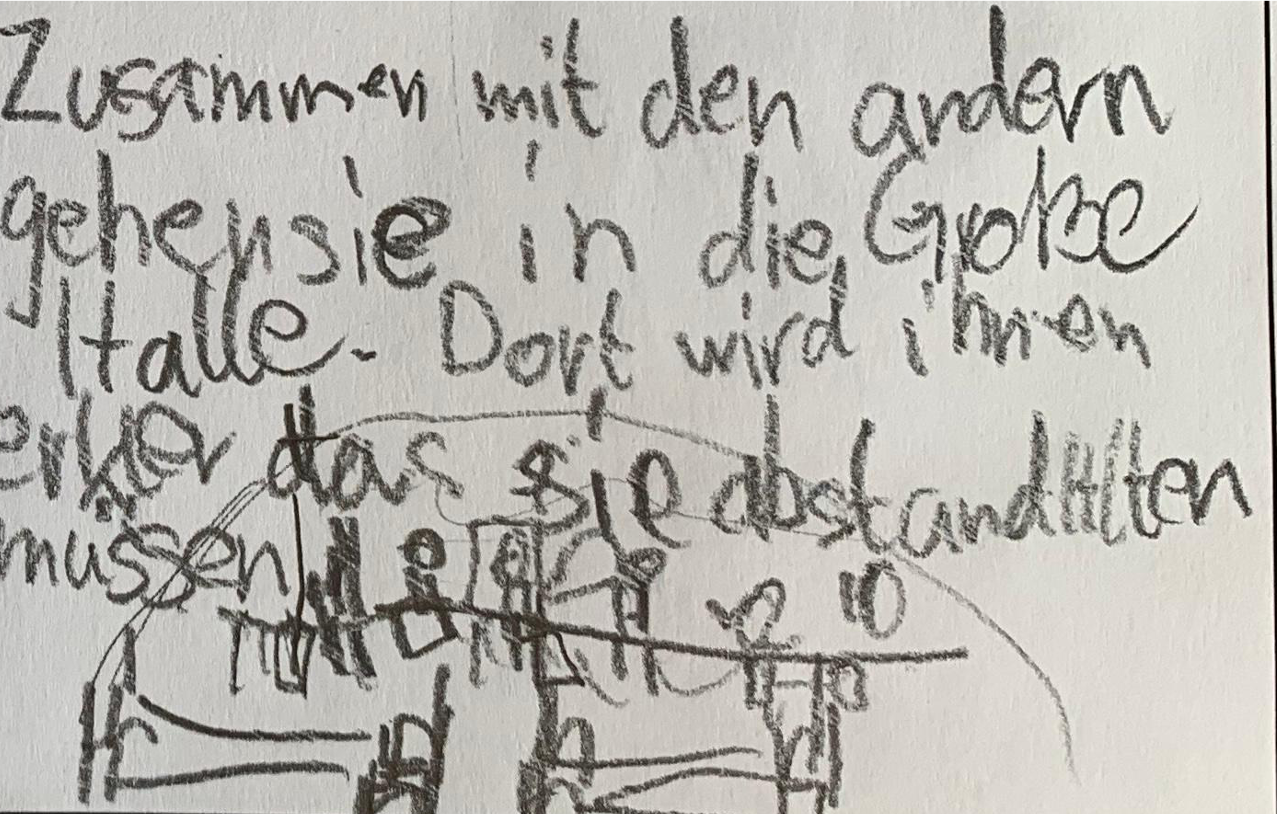 Zusammen mit den andern
gehen sie in die Große
Halle. Dort wird ihnen
das sie abstand
müssen